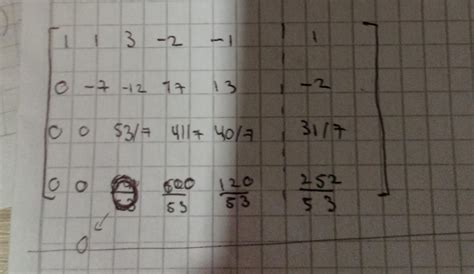 1 1 3 -2 -1 1
0 -7 -12 17 13 -2
0 0 53/7 41/7 40/7 31/7
0 0 600/53 120/53 252/53
0